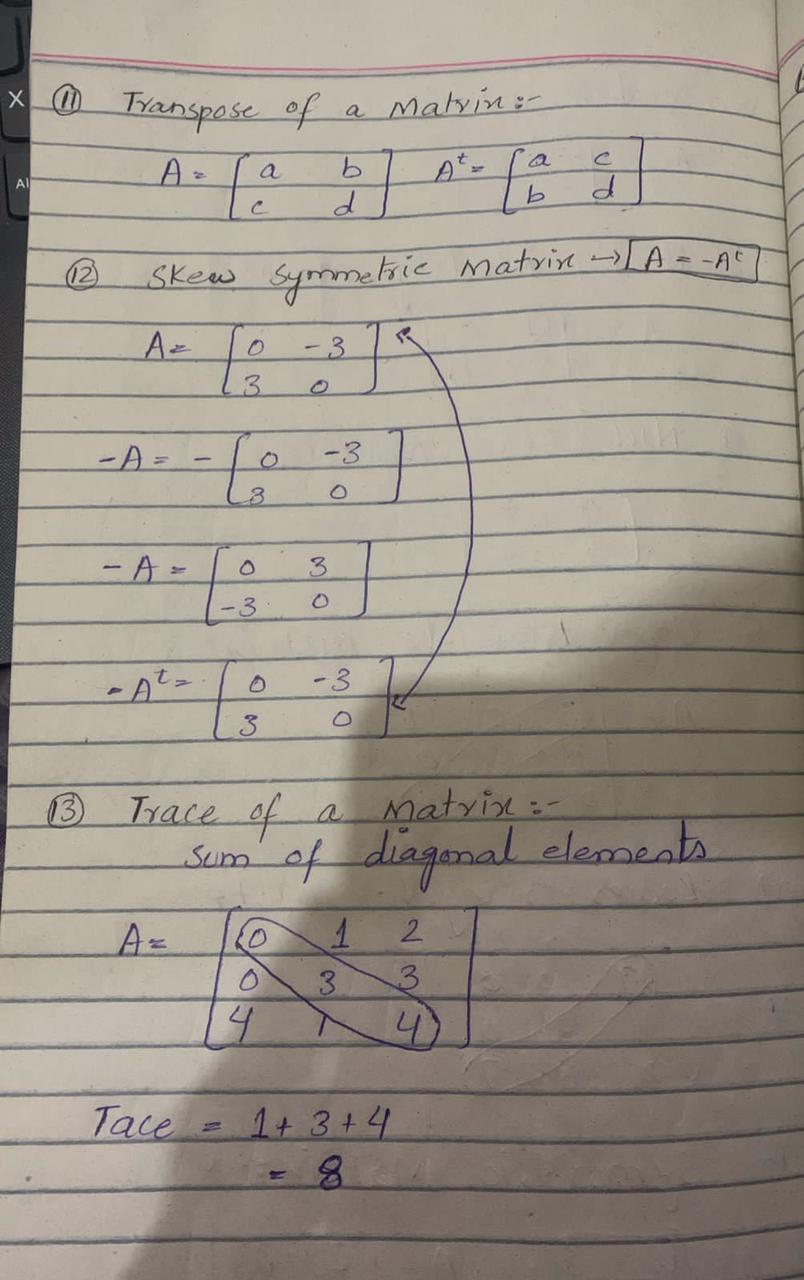 X
AI
⑪ Transpose of a Matrix :-
A = [a b; c d] Aᵗ = [a c; b d]
⑫ Skew Symmetric Matrix → A = -Aᵗ
A = [0 -3; 3 0]
-A = - [0 -3; 3 0]
-A = [0 3; -3 0]
-Aᵗ = [0 -3; 3 0]
⑬ Trace of a Matrix :-
Sum of diagonal elements
A = [0 1 2; 0 3 3; 4 1 4]
Tace = 1 + 3 + 4
= 8